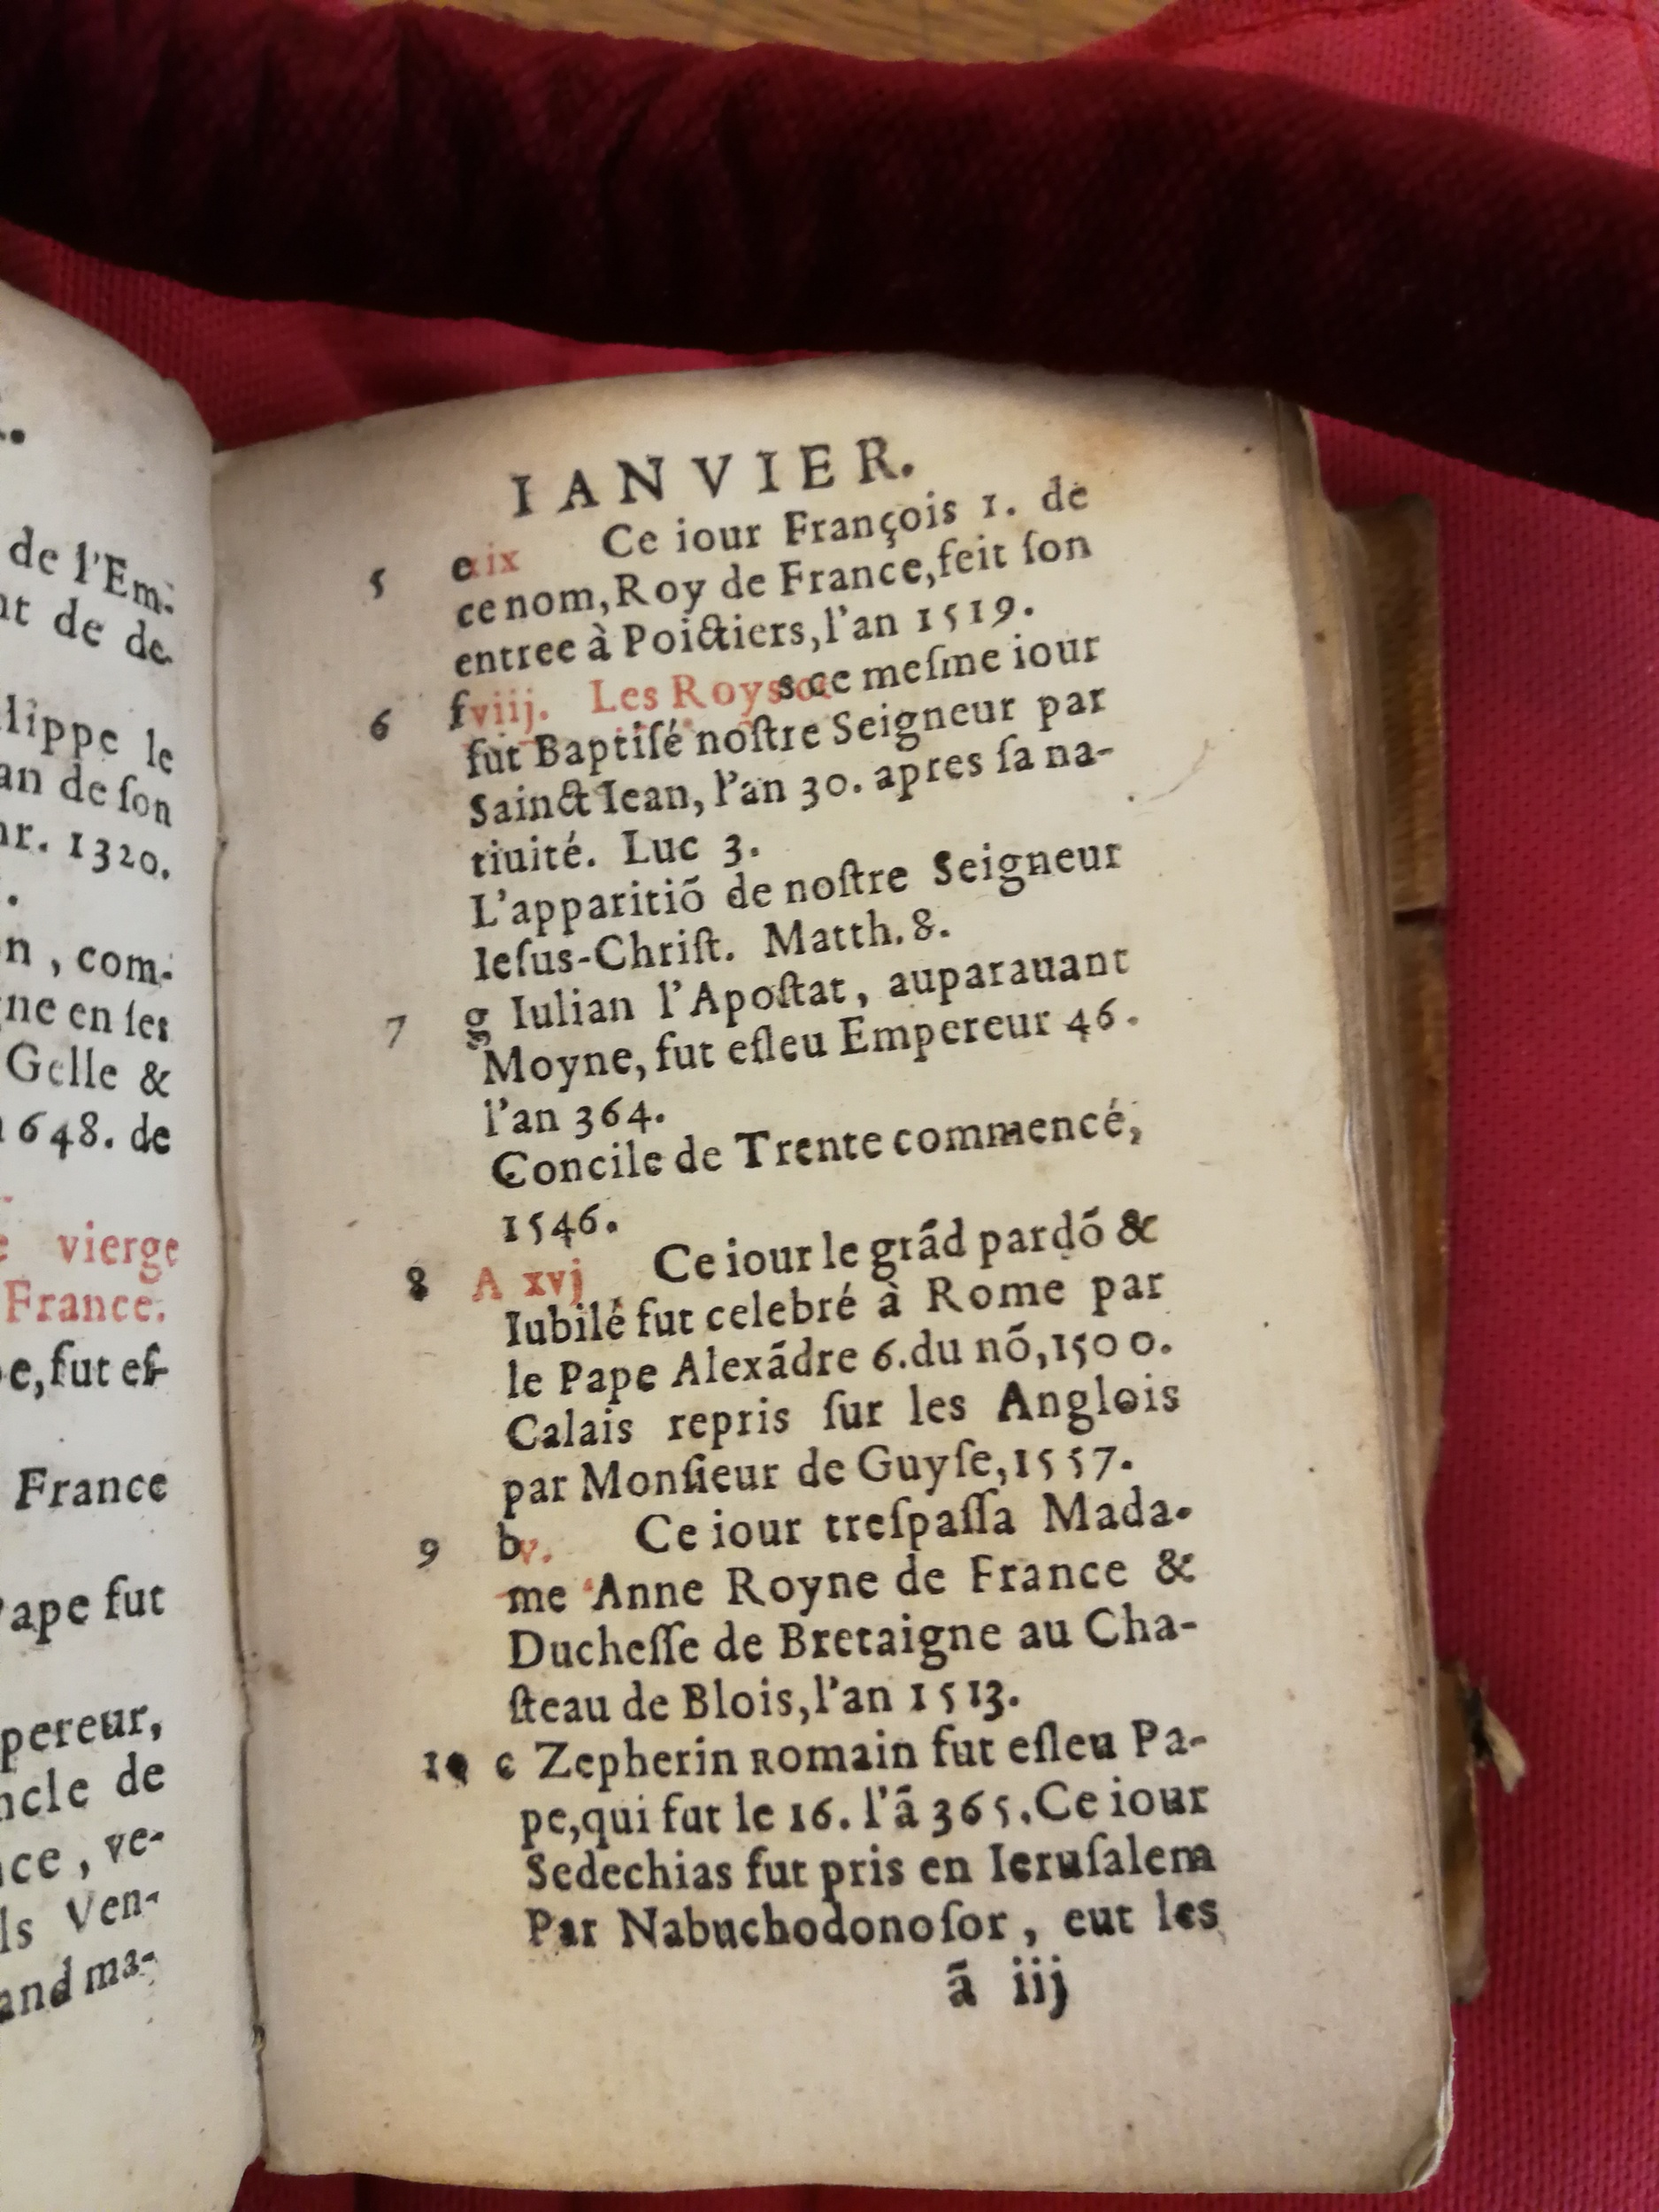 de l'Em-
nt de de
lippe le
an de ſon
1320.
n, com-
ne en ſes
Gelle &
1648. de
vierge
France.
e, fut eſ-
France
Pape fut
pereur,
ncle de
ce, ve-
ls Ven-
and ma-
IANVIER.
5 e xix Ce iour François 1. de
ce nom, Roy de France, feit ſon
entree à Poictiers, l'an 1519.
6 f viij. Les Roys ce meſme iour
fut Baptiſé noſtre Seigneur par
Sainct Iean, l'an 30. apres ſa na-
tiuité. Luc 3.
L'apparitiõ de noſtre Seigneur
Ieſus-Chriſt. Matth. 8.
7 g Iulian l'Apoſtat, auparauant
Moyne, fut eſleu Empereur 46.
l'an 364.
Concile de Trente commencé,
1546.
8 A xvj Ce iour le grãd pardõ &
Iubilé fut celebré à Rome par
le Pape Alexãdre 6. du nõ, 1500.
Calais repris ſur les Anglois
par Monſieur de Guyſe, 1557.
9 b v. Ce iour treſpaſſa Mada-
me Anne Royne de France &
Ducheſſe de Bretaigne au Cha-
ſteau de Blois, l'an 1513.
10 c Zepherin Romain fut eſleu Pa-
pe, qui fut le 16. l'ã 365. Ce iour
Sedechias fut pris en Ieruſalem
Par Nabuchodonoſor, eut les
ã iij